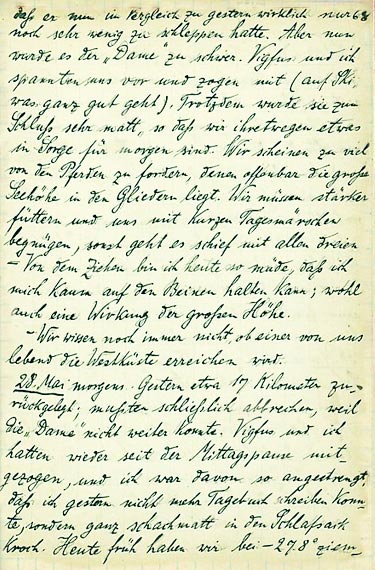 daß er nun im Vergleich zu gestern wirklich nur 63
noch sehr wenig zu schleppen hatte. Aber nun
wurde es der „Dame" zu schwer. Vigfus und ich
spannten uns vor und zogen mit (auf Ski,
was ganz gut geht). Trotzdem wurde sie zum
Schluß sehr matt, so daß wir ihretwegen etwas
in Sorge für morgen sind. Wir scheinen zu viel
von den Pferden zu fordern, denen offenbar die große
Seehöhe in den Gliedern liegt. Wir müssen stärker
füttern und uns mit kurzen Tagesmärschen
begnügen, sonst geht es schief mit allen dreien
– Von dem Ziehen bin ich heute so müde, daß ich
mich kaum auf den Beinen halten kann; wohl
auch eine Wirkung der großen Höhe.
– Wir wissen noch immer nicht, ob einer von uns
lebend die Westküste erreichen wird.
28. Mai morgens. Gestern etwa 17 Kilometer zu-
rückgelegt; mußten schließlich abbrechen, weil
die „Dame" nicht weiter konnte. Vigfus und ich
hatten wieder seit der Mittagspause mit-
gezogen, und ich war davon so angestrengt,
daß ich gestern nicht mehr Tagebuch schreiben konn-
te, sondern ganz schachmatt in den Schlafsack
kroch. Heute früh haben wir bei – 27.8° ziem-